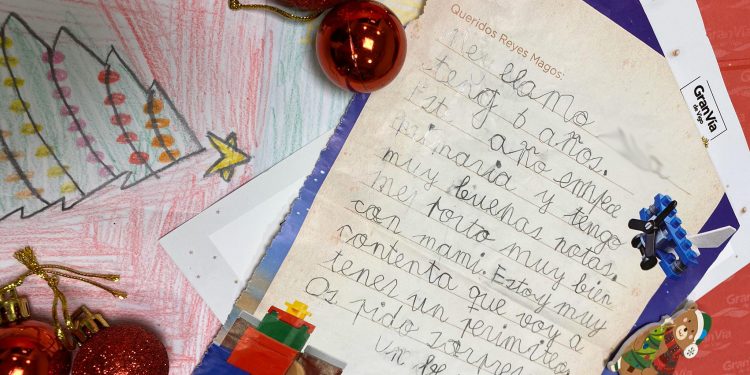 Queridos Reyes Magos:
Mei llamo
tengo 6 años.
Est año empece
primaria y tengo
muy buenas notas.
mei porto muy bien
con mami. Esztoy muy
contenta que voy a
tenes un perimiteo
Os pido sorpres
un be
GranVía
de Vigo